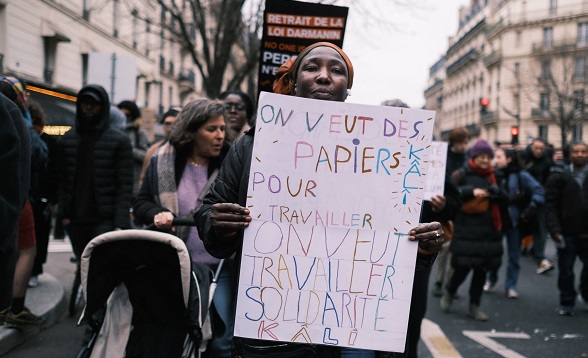 RETRAIT DE LA
LOI DARMANIN
NO ONE IS
ON VEUT DES
PAPIERS
KÂLI
POUR
TRAVAILLER
ON VEUT
TRAVAILLER
SOLIDARITÉ
KÂLI